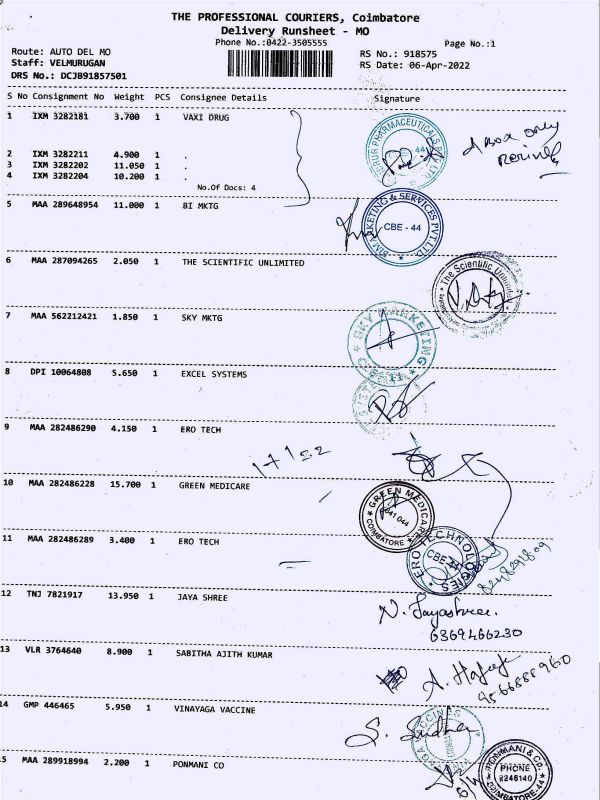 THE PROFESSIONAL COURIERS, Coimbatore
Delivery Runsheet - MO
Phone No.:0422-3505555
Page No.:1
Route: AUTO DEL MO
RS No.: 918575
Staff: VELMURUGAN
RS Date: 06-Apr-2022
DRS No.: DCJB91857501
S No Consignment No Weight PCS Consignee Details Signature
1 IXM 3282181 3.700 1 VAXI DRUG
PHARMACEUTICALS
44
1 Box only
2 IXM 3282211 4.900 1 .
3 IXM 3282202 11.050 1 .
4 IXM 3282204 10.200 1 .
No.Of Docs: 4
5 MAA 289648954 11.000 1 BI MKTG
MARKETING & SERVICES PVT LTD
CBE - 44
6 MAA 287094265 2.050 1 THE SCIENTIFIC UNLIMITED
The Scientific Unlimited
7 MAA 562212421 1.850 1 SKY MKTG
SKY MARKETING
8 DPI 10064808 5.650 1 EXCEL SYSTEMS
9 MAA 282486290 4.150 1 ERO TECH
1+1=2
10 MAA 282486228 15.700 1 GREEN MEDICARE
GREEN MEDICARE
641 044
COIMBATORE
11 MAA 282486289 3.400 1 ERO TECH
ERO TECHNOLOGIES
CBE-44
12 TNJ 7821917 13.950 1 JAYA SHREE
N. Jayashree.
6369466230
13 VLR 3764640 8.900 1 SABITHA AJITH KUMAR
9566888960
14 GMP 446465 5.950 1 VINAYAGA VACCINE
S. Sudha
5 MAA 289918994 2.200 1 PONMANI CO
PONMANI & Co.
PHONE
8246140
COIMBATORE